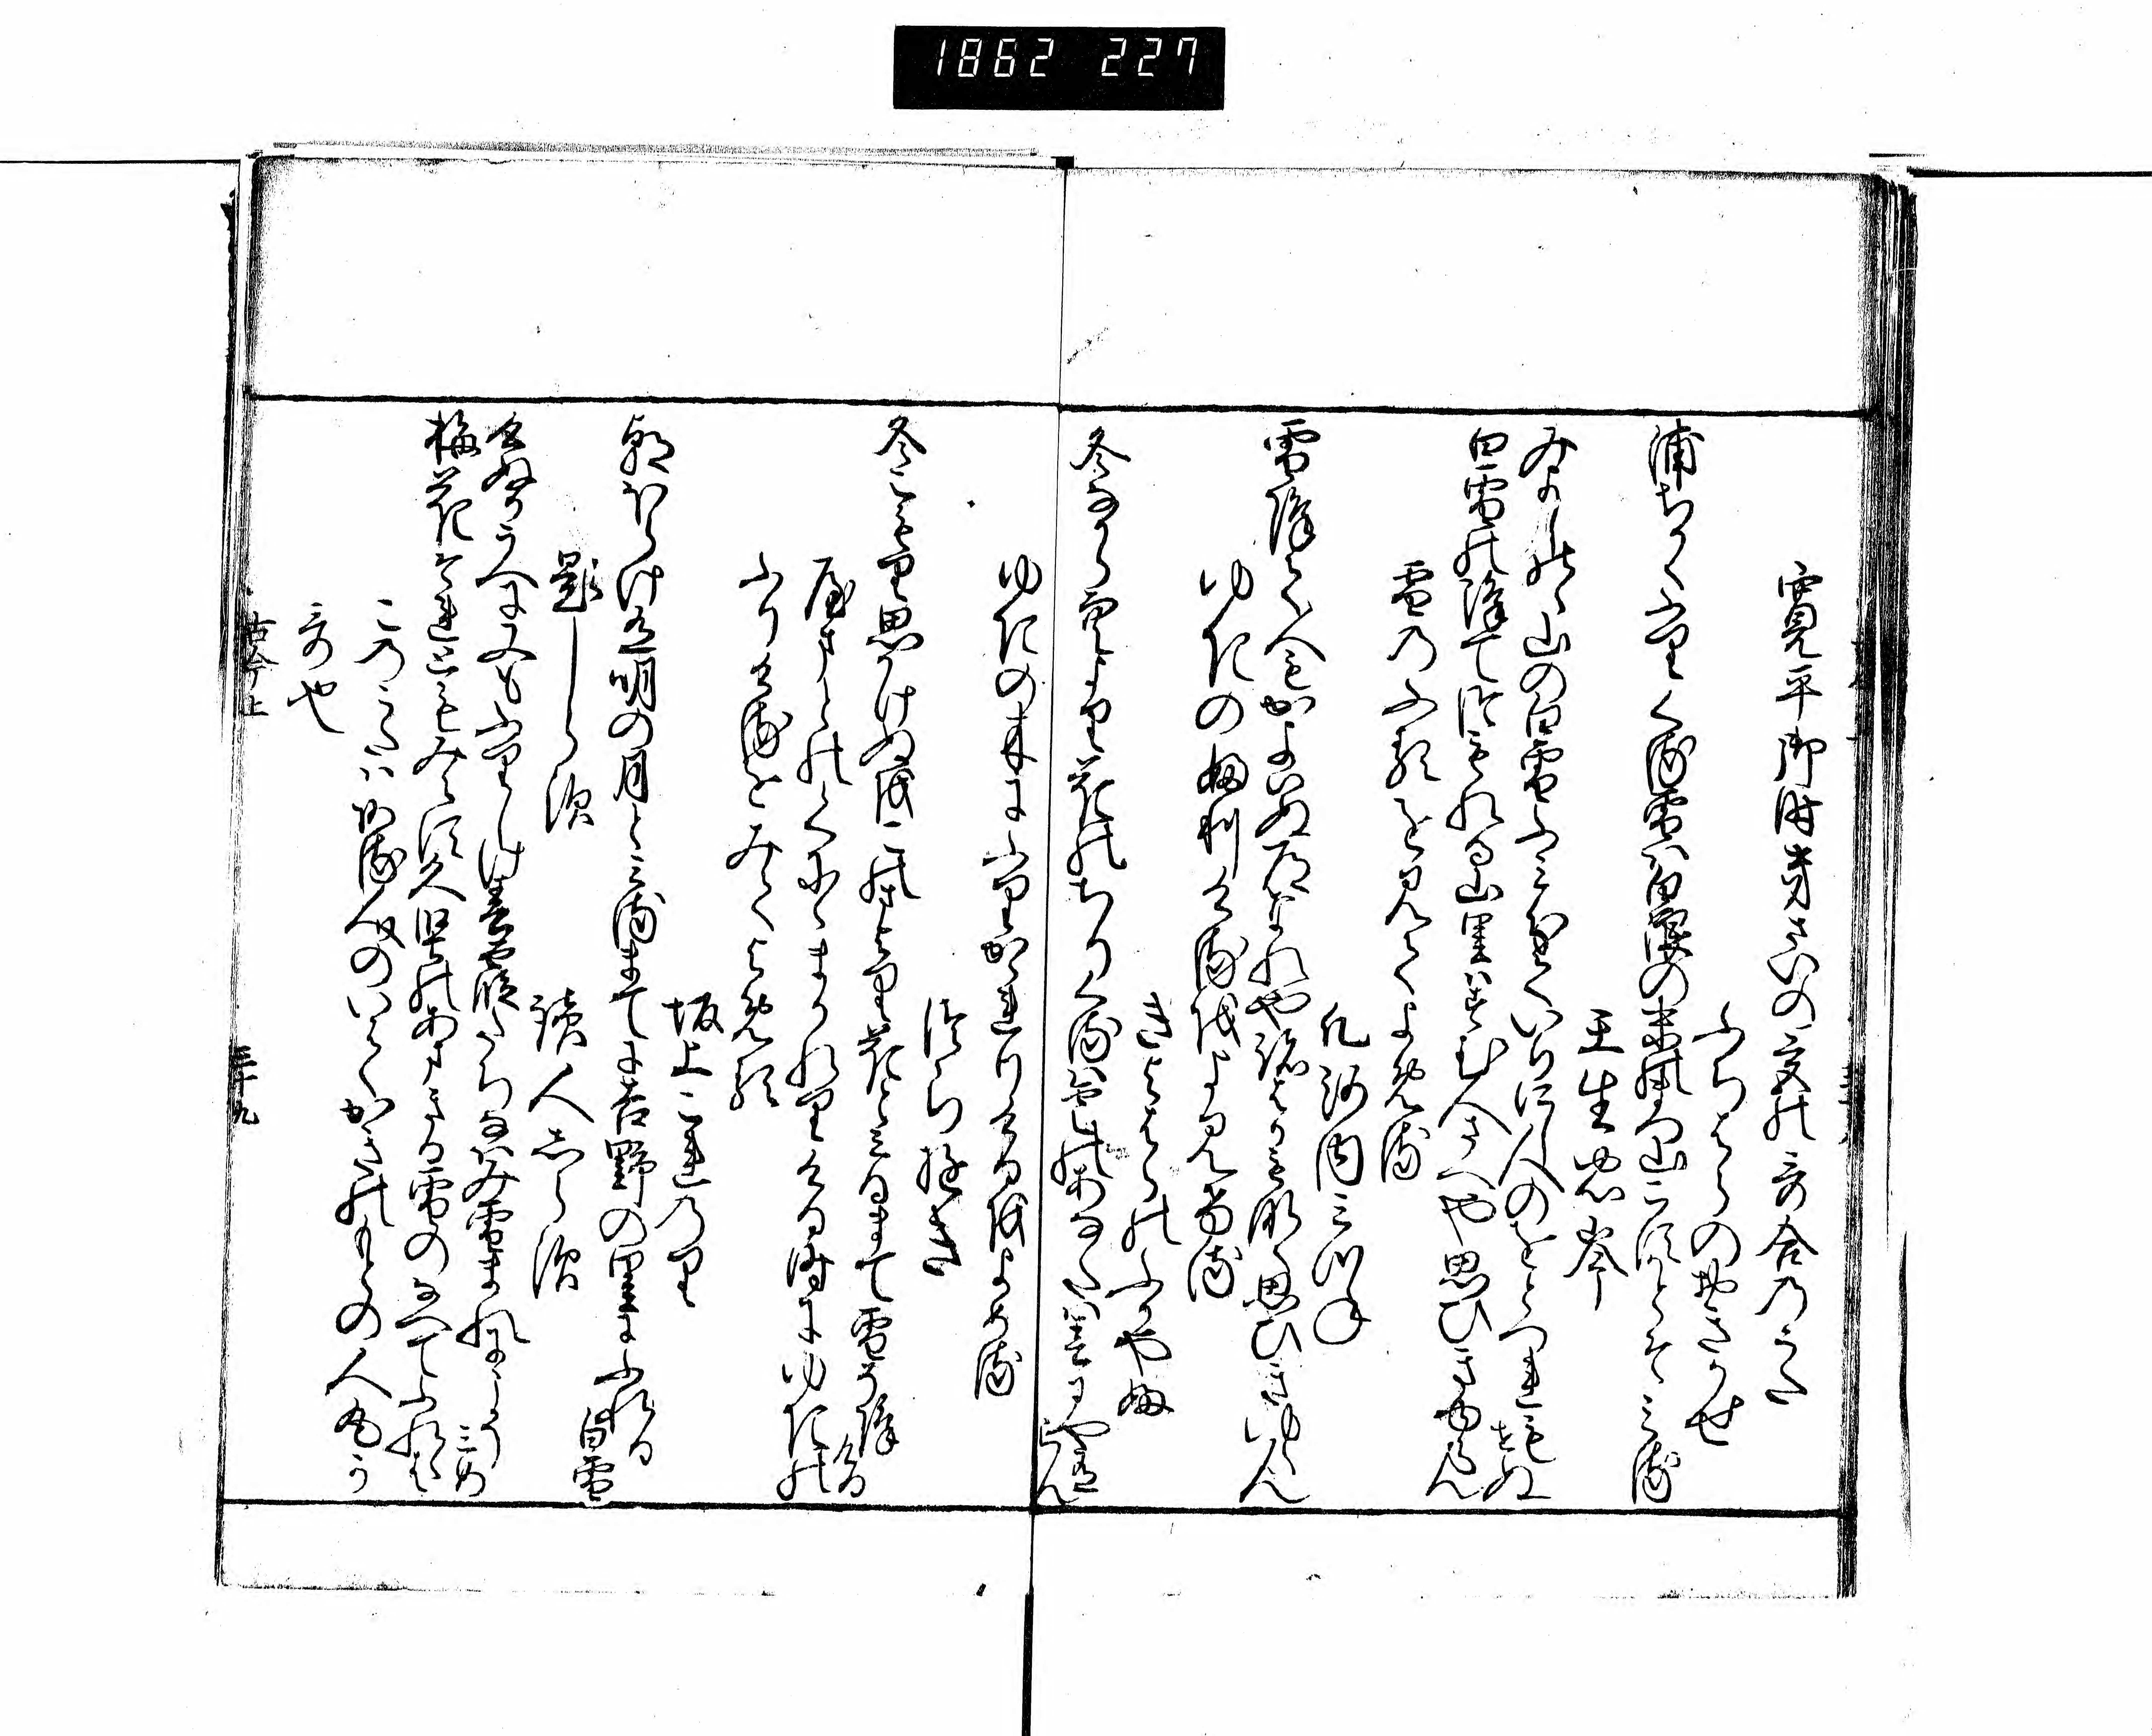 1862 227
寛平御時きさいの宮の哥合のうた
ふちはらのおきかせ
浦ちかくふりくる雪は白浪の末の松山こすかとそみる
壬生忠岑
みよしのゝ山の白雪ふみわけていりにし人のをとつれもせぬ
白雪の降てつもれる山里はすむ人さへや思ひきゆらん
雪のふるを見てよめる
凡河内みつね
雪降て人もかよはぬ道なれや跡はかもなく思ひきゆらん
ゆきの降りけるをよみける
きよはらのふかやふ
冬なからそらより花のちりくるは雲のあなたは春にやあるらん
ゆきの木にふりかゝれりけるをよめる
つらゆき
冬こもり思かけぬをこのまより花とみるまて雪そ降ける
やまとのくにゝまかれりける時にゆきの
ふりけるをみてよめる
坂上これのり
朝ほらけ有明の月とみるまてに吉野の里にふれる白雪
題しらす
読人しらす
けぬかうへに又もふりしけ春霞たちなはみ雪まれにこそみめ
梅花それともみえす久堅のあまきる雪のなへてふれゝは
このうたはある人のいはくかきのもとの人丸か
哥也
古今上
三十九